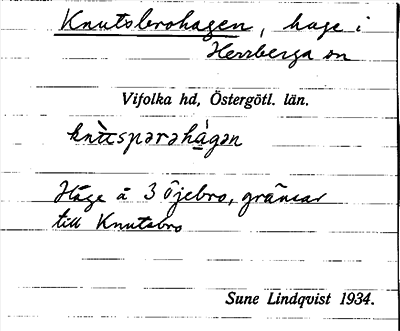 Knutsbrohagen, hage i
Herrberga sn
Vifolka hd, Östergötl. län.
Hage å 3 Öjebro, gränsar
till Knutsbro
Sune Lindqvist 1934.